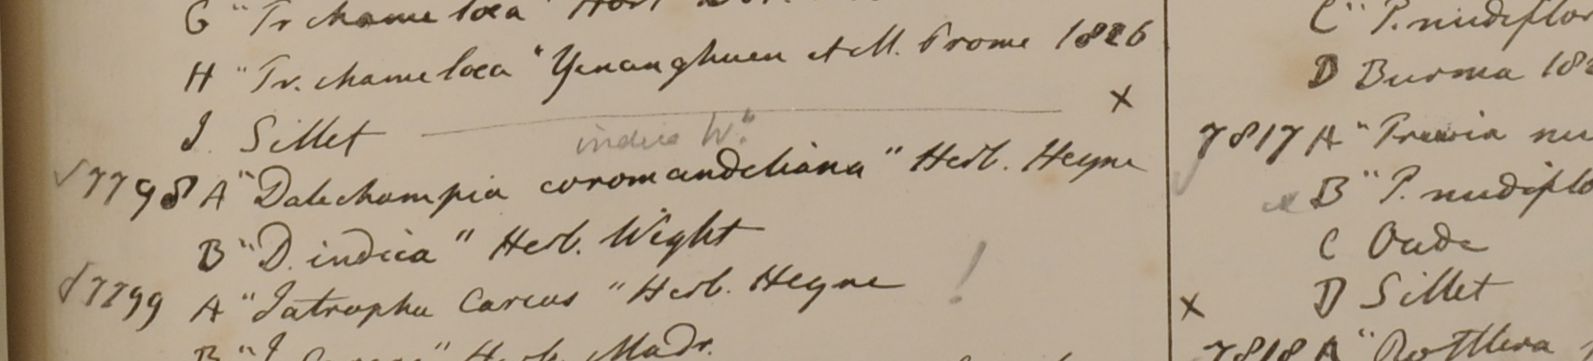 G "Tr chameloea"
H "Tr. chameloea" Yenanghuen et M. Prome 1826
J. Sillet x
indica W."
√7798 A "Dalechampia coromandeliana" Herb. Heyne
B "D. indica" Herb. Wight
√7799 A "Jatropha Curcas" Herb. Heyne !
B "J. Curcas" Herb. Madr.
C "P. nudiflor
D Burma 182
7817 A "Trewia nu
B "P. nudiflo
C Oude
x D Sillet
7818 A "Rottlera